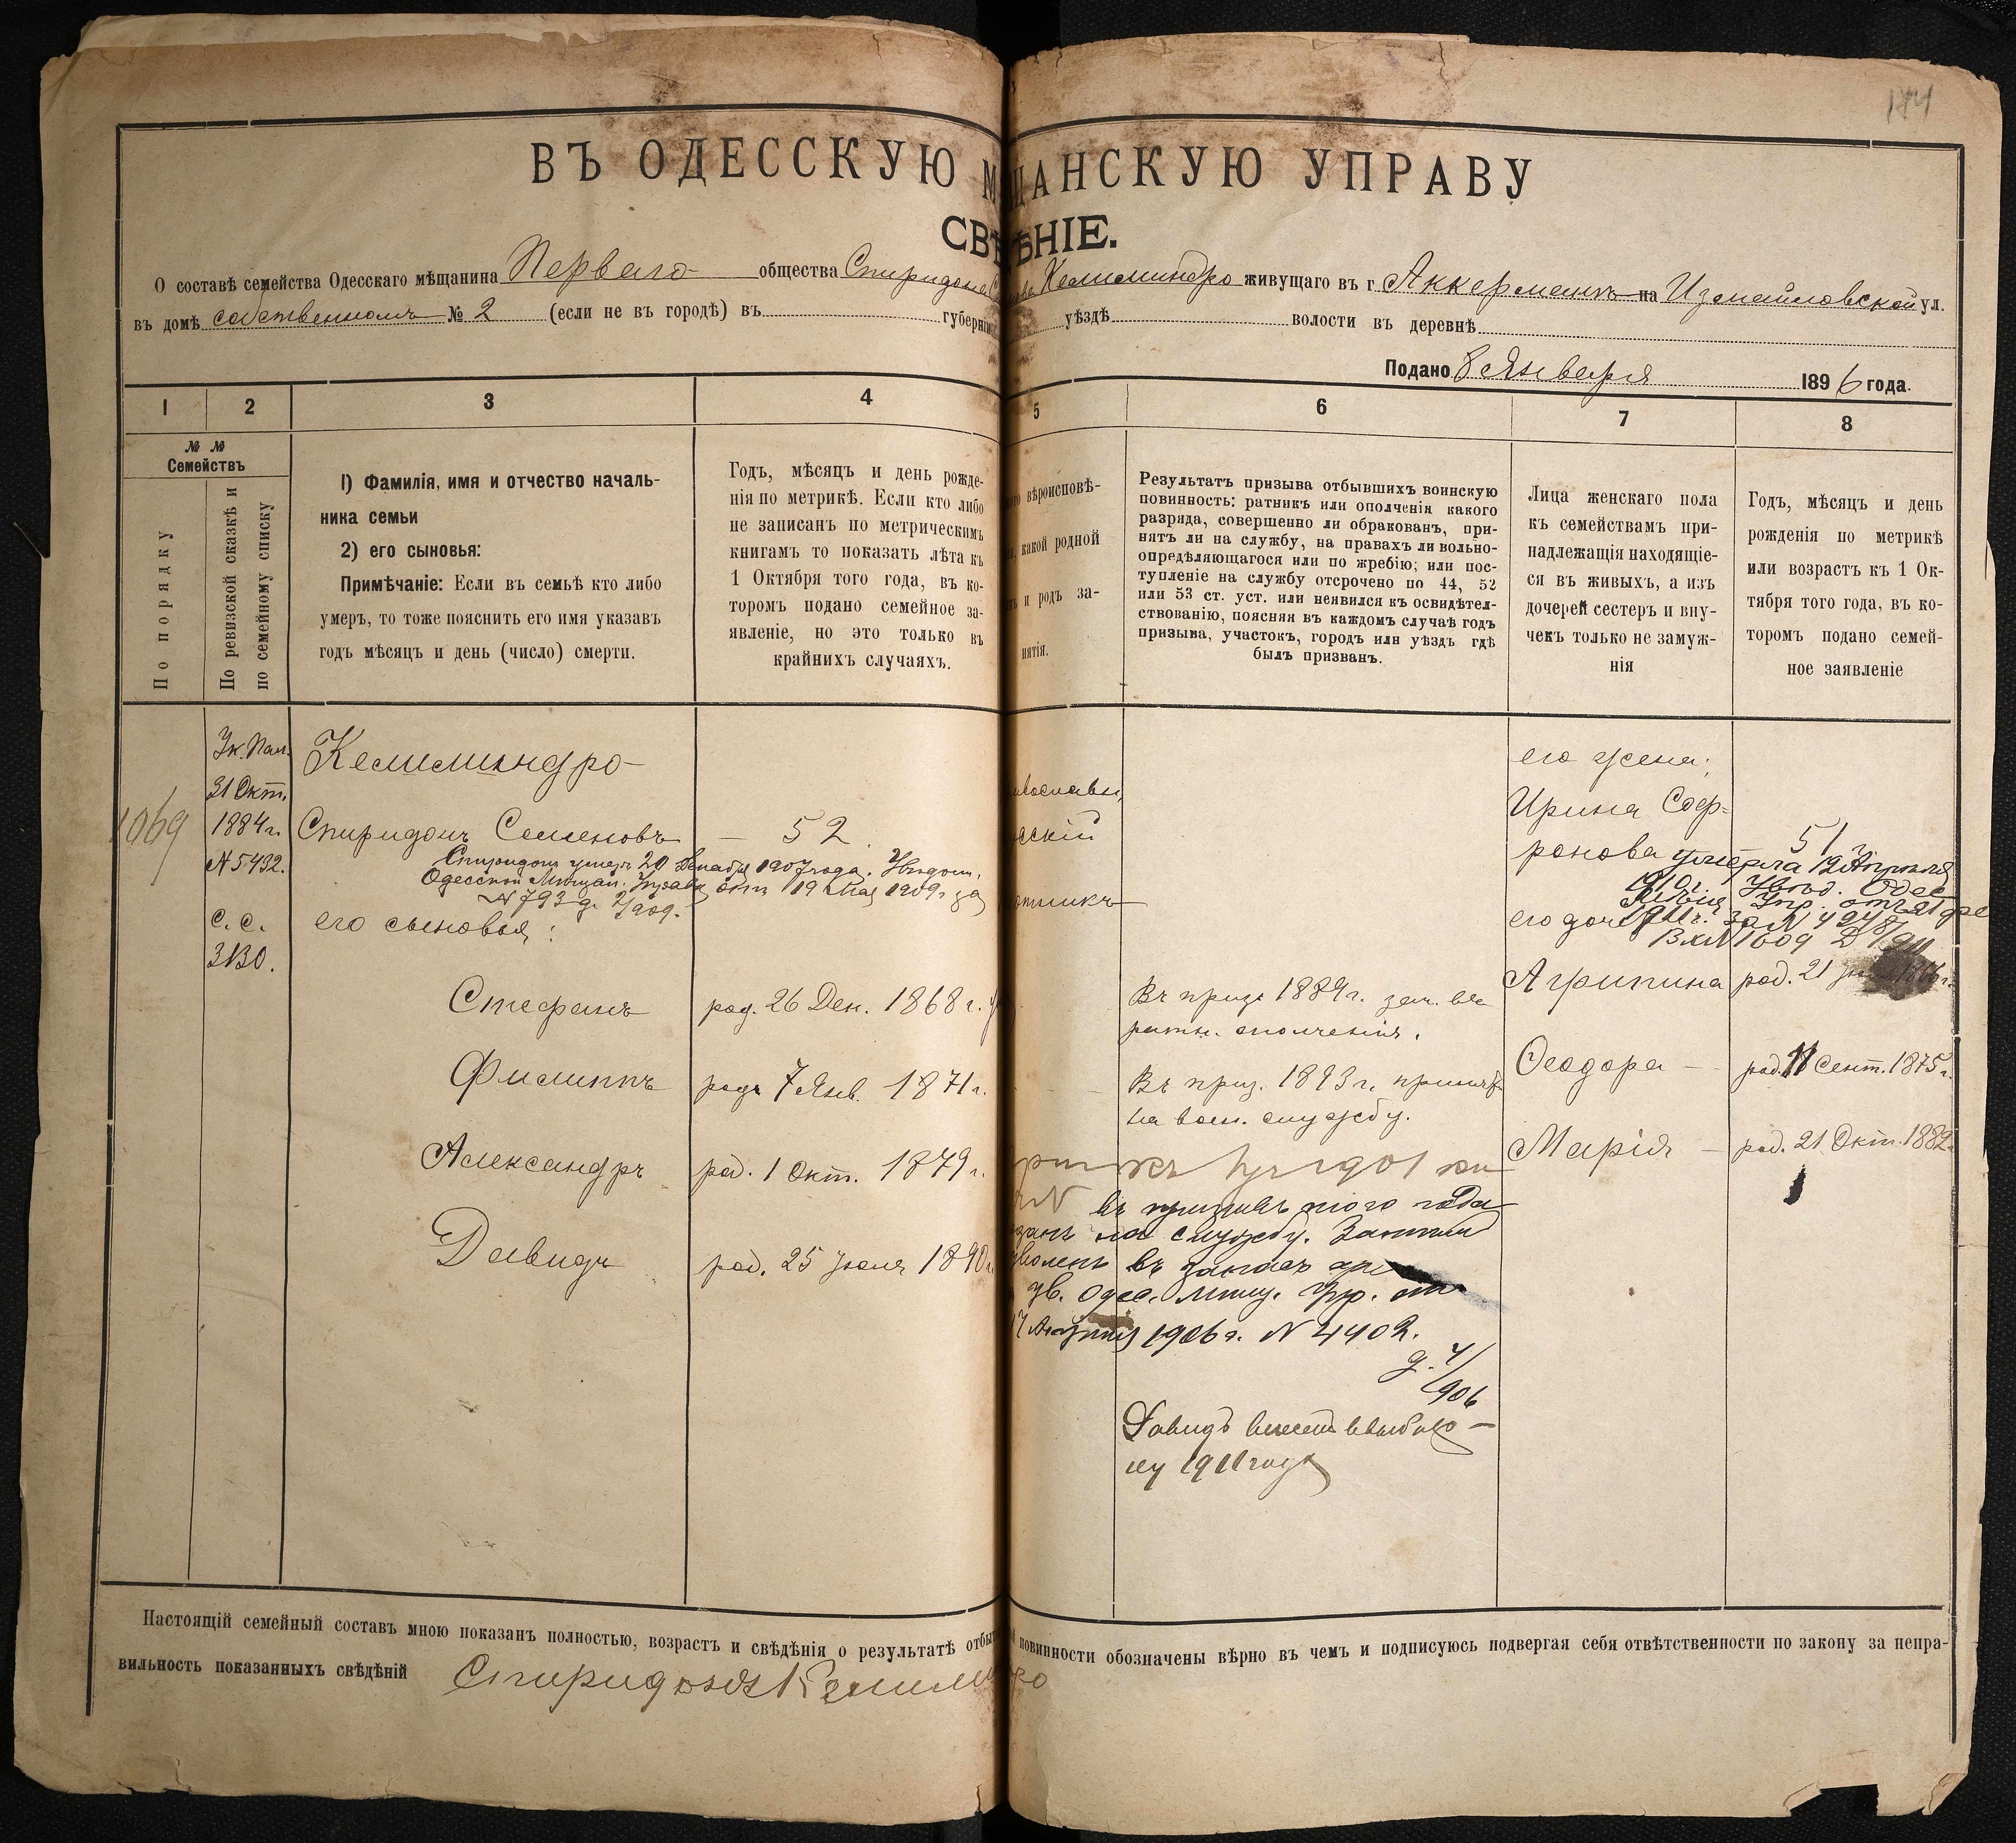 144
ВЪ ОДЕССКУЮ М ЩАНСКУЮ УПРАВУ
СВѢ ѢНІЕ.
О составѣ семейства Одесскаго мѣщанина Перваго общества Спиридона Келиминдро живущаго въ г Аккерманъ на Измаиловской ул.
въ домѣ собственномъ № 2 (если не въ городѣ) въ губерніи уѣздѣ волости въ деревнѣ
Подано 8 Января 1896 года.
1 2 3 4 5 6 7 8
№ №
Семействъ
По порядку
По ревизской сказкѣ и
по семейному списку
1) Фамилія, имя и отчество началь-
ника семьи
2) его сыновья:
Примѣчаніе: Если въ семьѣ кто либо
умеръ, то тоже пояснить его имя указавъ
годъ мѣсяцъ и день (число) смерти.
Годъ, мѣсяцъ и день рожде-
нія по метрикѣ. Если кто либо
не записанъ по метрическимъ
книгамъ то показать лѣта къ
1 Октября того года, въ ко-
торомъ подано семейное за-
явленіе, но это только въ
крайнихъ случаяхъ.
вѣроисповѣ-
какой родной
и родъ за-
нятія.
Результатъ призыва отбывшихъ воинскую
повинность: ратникъ или ополченія какого
разряда, совершенно ли обракованъ, при-
нятъ ли на службу, на правахъ ли вольно-
опредѣляющагося или по жребію; или пос-
тупленіе на службу отсрочено по 44, 52
или 53 ст. уст. или неявился къ освидѣтел-
ствованію, поясняя въ каждомъ случаѣ годъ
призыва, участокъ, городъ или уѣздъ гдѣ
былъ призванъ.
Лица женскаго пола
къ семействамъ при-
надлежащія находящіе-
ся въ живыхъ, а изъ
дочерей сестеръ и вну-
чекъ только не замуж-
нія
Годъ, мѣсяцъ и день
рожденія по метрикѣ
или возрастъ къ 1 Ок-
тября того года, въ ко-
торомъ подано семей-
ное заявленіе
1069
Ук. Пал.
31 Окт.
1884 г.
№ 5432.
С. С.
3130.
Келиминдро
Спиридонъ Семеновъ — 52
Спиридонъ умеръ 20 Декабря 1907 года. Увѣдом.
Одесской Мѣщан. Управы отъ 19 Мая 1909 г. за
№ 793 д. 2/909.
его сыновья:
Стефанъ род. 26 Дек. 1868 г.
Филиппъ род. 7 Янв. 1871 г.
Александръ род. 1 Окт. 1879 г.
Давидъ род. 25 Іюля 1890 г.
Въ приз. 1889 г. зач. въ
ратн. ополченія.
Въ приз. 1893 г. принятъ
на воен. службу.
1901
въ призывъ того года
на службу. Затѣмъ
въ запасъ
ув. Одес. Мѣщ. Упр. от
17 Августа 1906 г. № 4402.
д. 4/906
Давидъ внесенъ
1911 года
его жена:
Ирина Соф-
ронова 51
умерла 12 Апреля
1910 г. Увѣд. Одес
Мѣщ. Упр. отъ 21
1911 г. за № 4248/
Вх № 1609 Д
его доч
Агрипина род. 21
Ѳеодора — род. 11 Сент. 1875 г.
Марія — род. 21 Окт. 1882
Настоящій семейный составъ мною показанъ полностью, возрастъ и свѣдѣнія о результатѣ отбы повинности обозначены вѣрно въ чемъ и подписуюсь подвергая себя отвѣтственности по закону за непра-
вильность показанныхъ свѣдѣній Спиридонъ